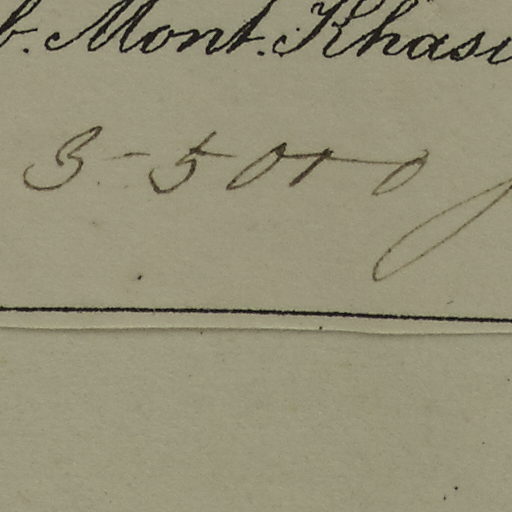 b. Mont. Khasi
3-5000 f